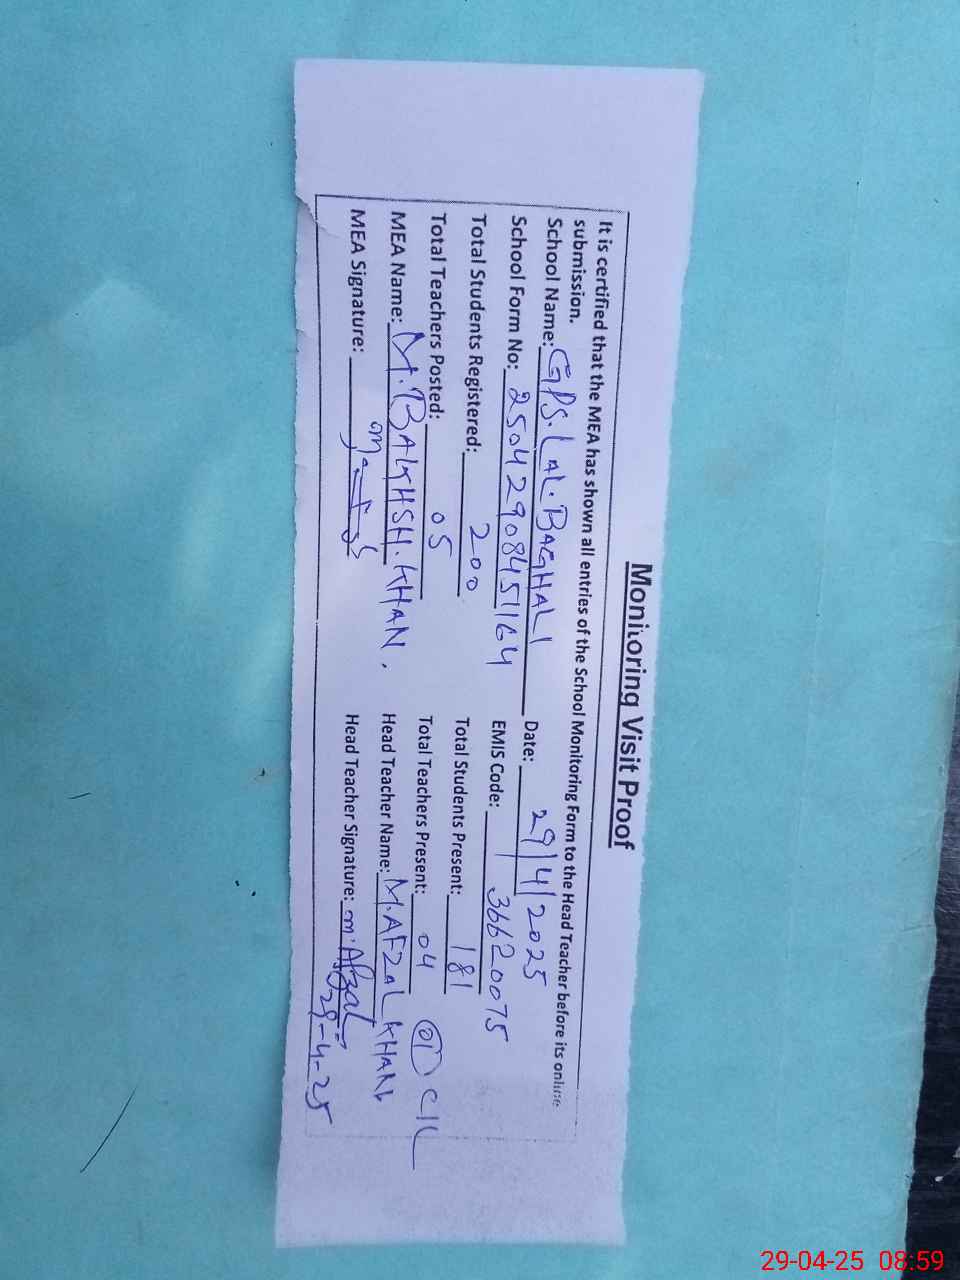 Monitoring Visit Proof
It is certified that the MEA has shown all entries of the School Monitoring Form to the Head Teacher before its online
submission.
School Name: GPS. LAL. BAGHALI Date: 29/4/2025
School Form No: 25042908451164 EMIS Code: 36620075
Total Students Registered: 200 Total Students Present: 181
Total Teachers Posted: 05 Total Teachers Present: 04 01 C/L
MEA Name: M. BAKHSH. KHAN. Head Teacher Name: M. AFZAL KHAN
MEA Signature: Head Teacher Signature: M. Afzal
29-4-25
29-04-25 08:59